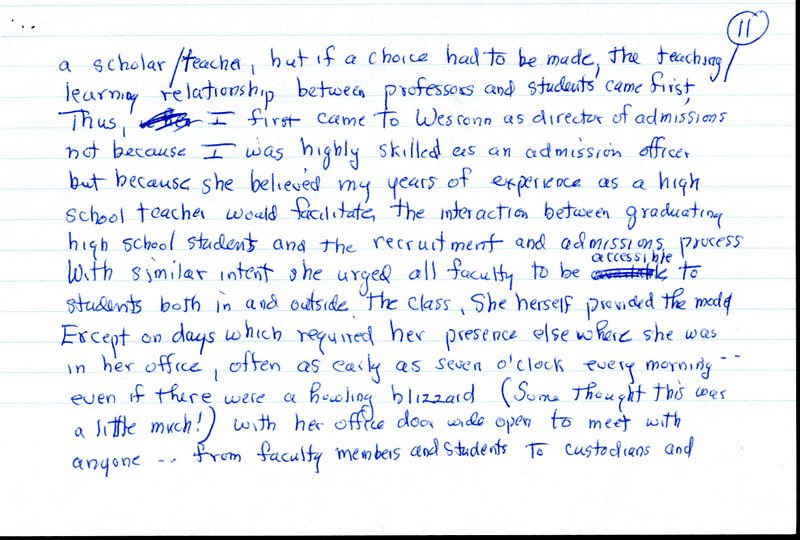 11
a scholar/teacher, but if a choice had to be made, the teaching/
learning relationship between professors and students came first.
Thus, I first came to Wesconn as director of admissions
not because I was highly skilled as an admission officer
but because she believed my years of experience as a high
school teacher would facilitate the interaction between graduating
high school students and the recruitment and admissions process
accessible
With similar intent she urged all faculty to be available to
students both in and outside the class. She herself provided the model
Except on days which required her presence elsewhere she was
in her office, often as early as seven o'clock every morning --
even if there were a howling blizzard (Some thought this was
a little much!) with her office door wide open to meet with
anyone -- from faculty members and students to custodians and